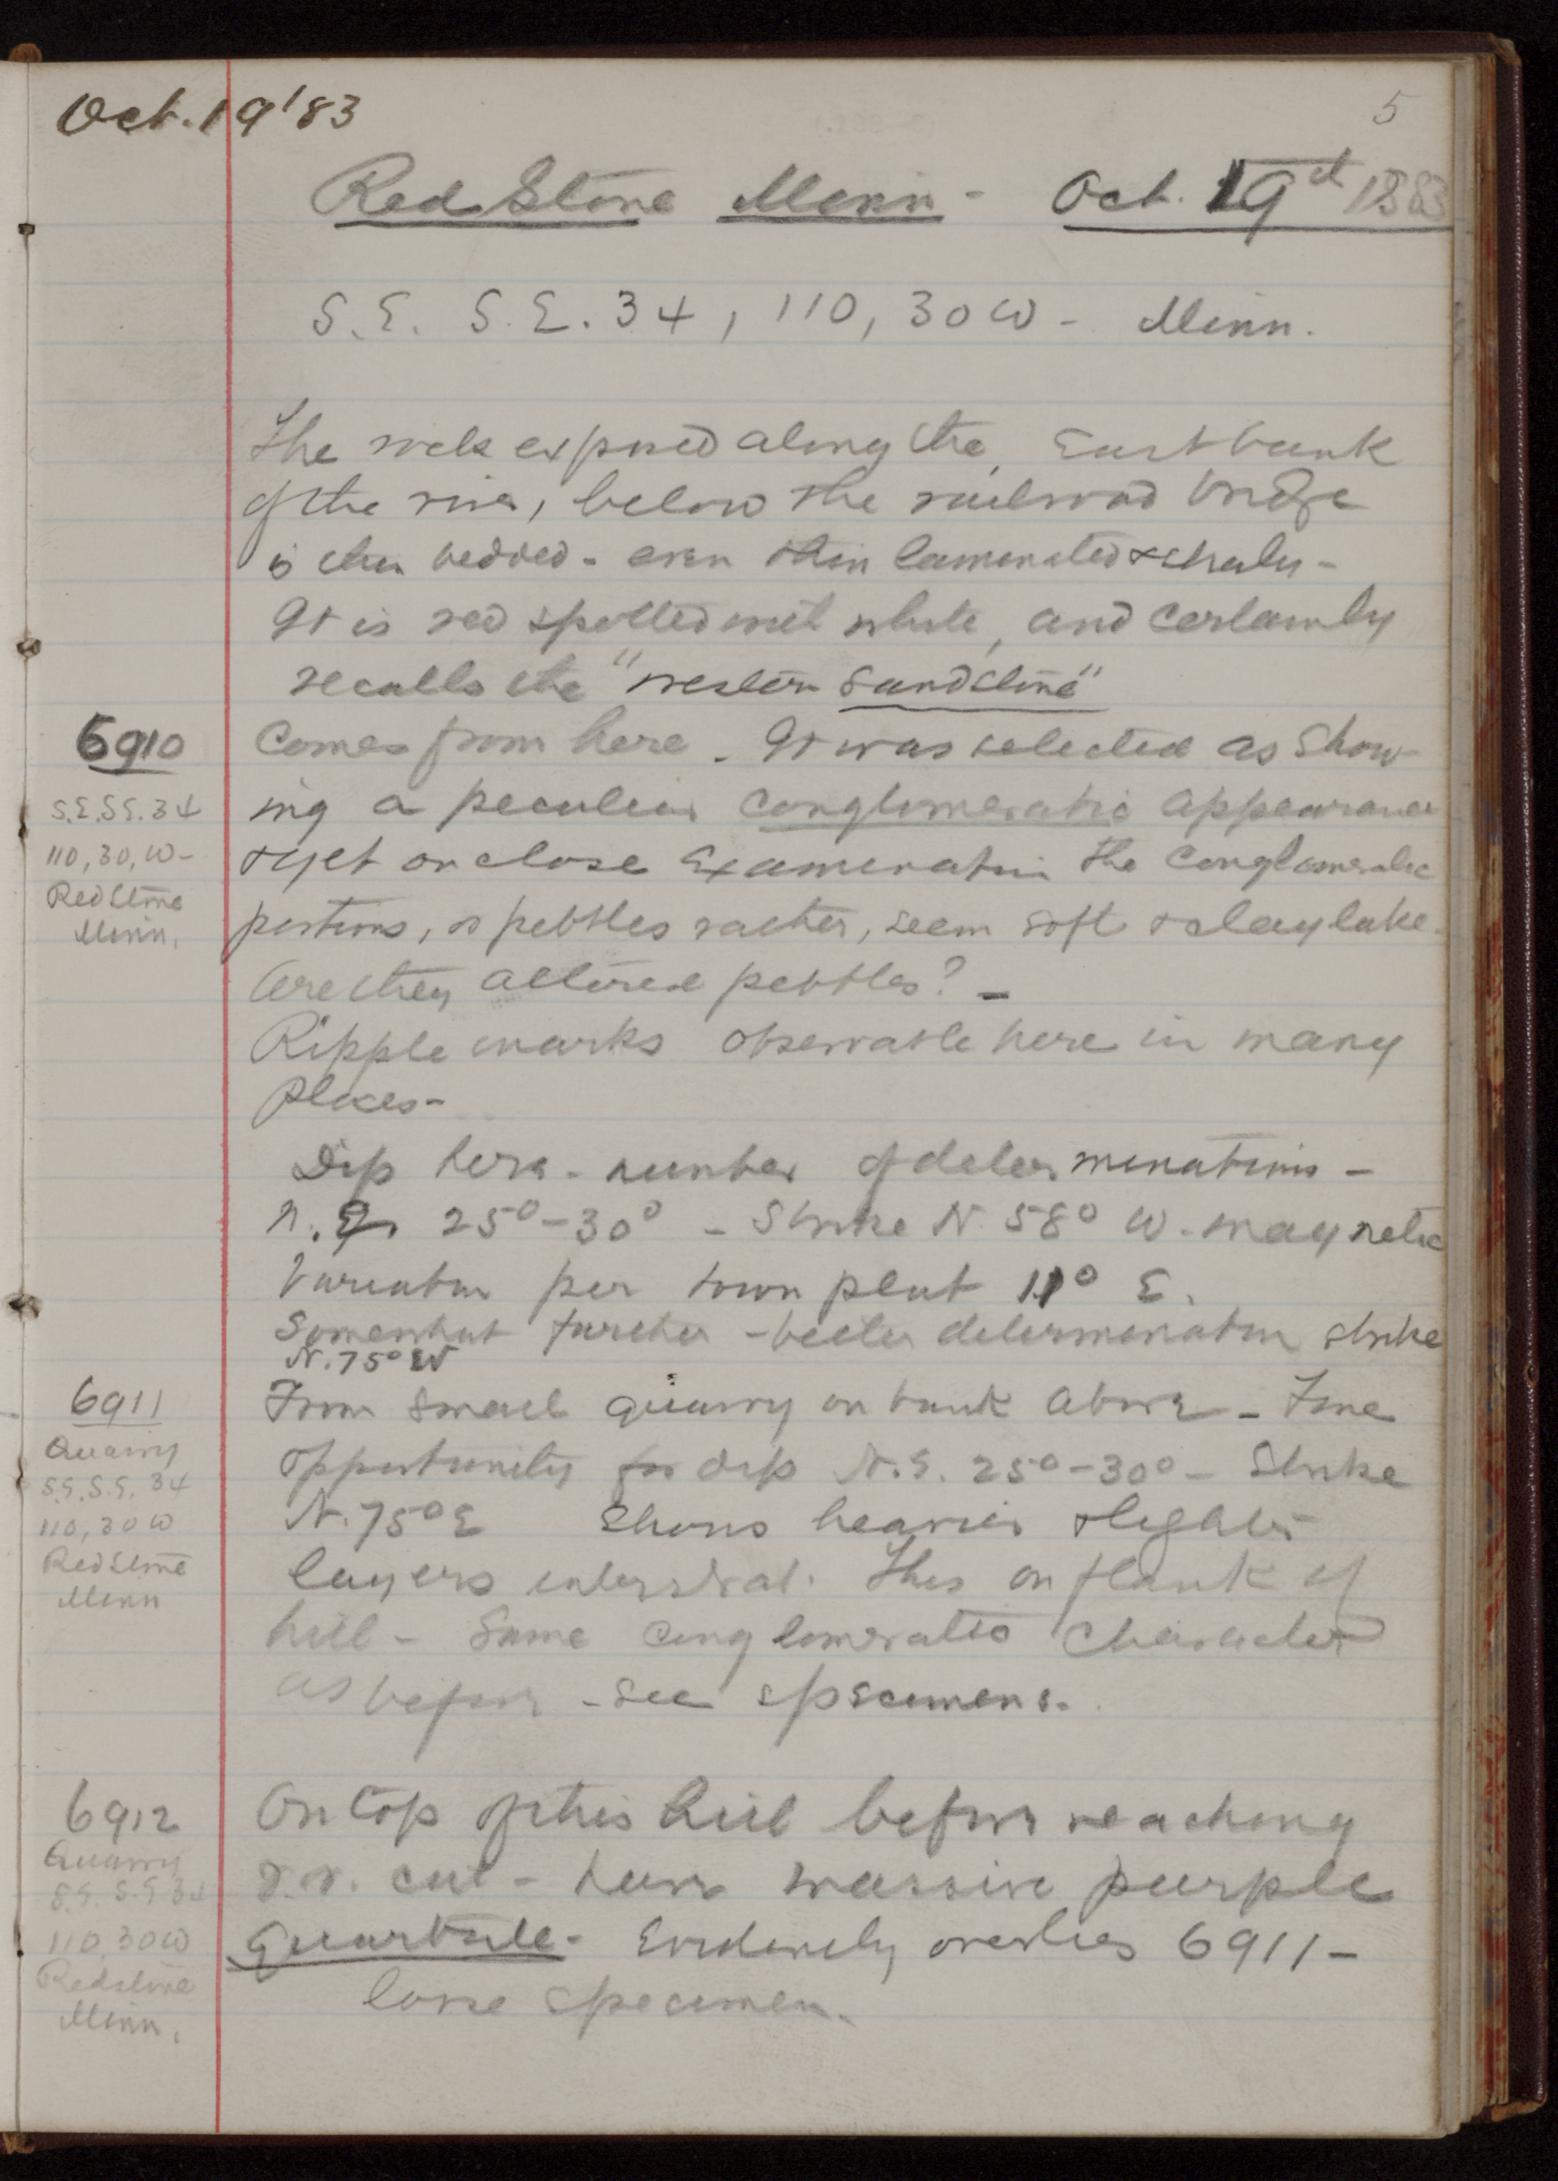 Oct. 19 '83
5
Red Stone Minn - Oct. 19th 1883
S.E. S.E. 34, 110, 30 W - Minn.
The rock exposed along the East bank
of the river, below the railroad bridge
is thin bedded - even thin laminated & shaly -
It is red spotted with white, and certainly
recalls the "western sandstone"
6910
S.E. S.E. 34
110, 30, W -
Red Stone
Minn.
Comes from here. It was selected as show-
ing a peculiar conglomeratic appearance
& yet on close examination the conglomeratic
portions, or pebbles rather, seem soft & clay like.
Are they altered pebbles? -
Ripple marks observable here in many
places -
Dip here - number of determinations -
N.E. 25° - 30° - Strike N. 58° W. magnetic
Variation per town plat 11° E.
Somewhat further - better determination strike
N. 75° W
6911
Quarry
S.E. S.E. 34
110, 30 W
Red Stone
Minn
From small quarry on bank above - Fine
opportunity for dip N.E. 25° - 30° - Strike
N. 75° E Shows heavier & lighter
layers interstrat. This on flank of
hill - Same conglomeratic character
as before - see specimens.
6912
Quarry
S.E. S.E 34
110, 30 W
Redstone
Minn.
On top of this hill before reaching
r.r. cut - have massive purple
quartzite - Evidently overlies 6911 -
loose specimen.